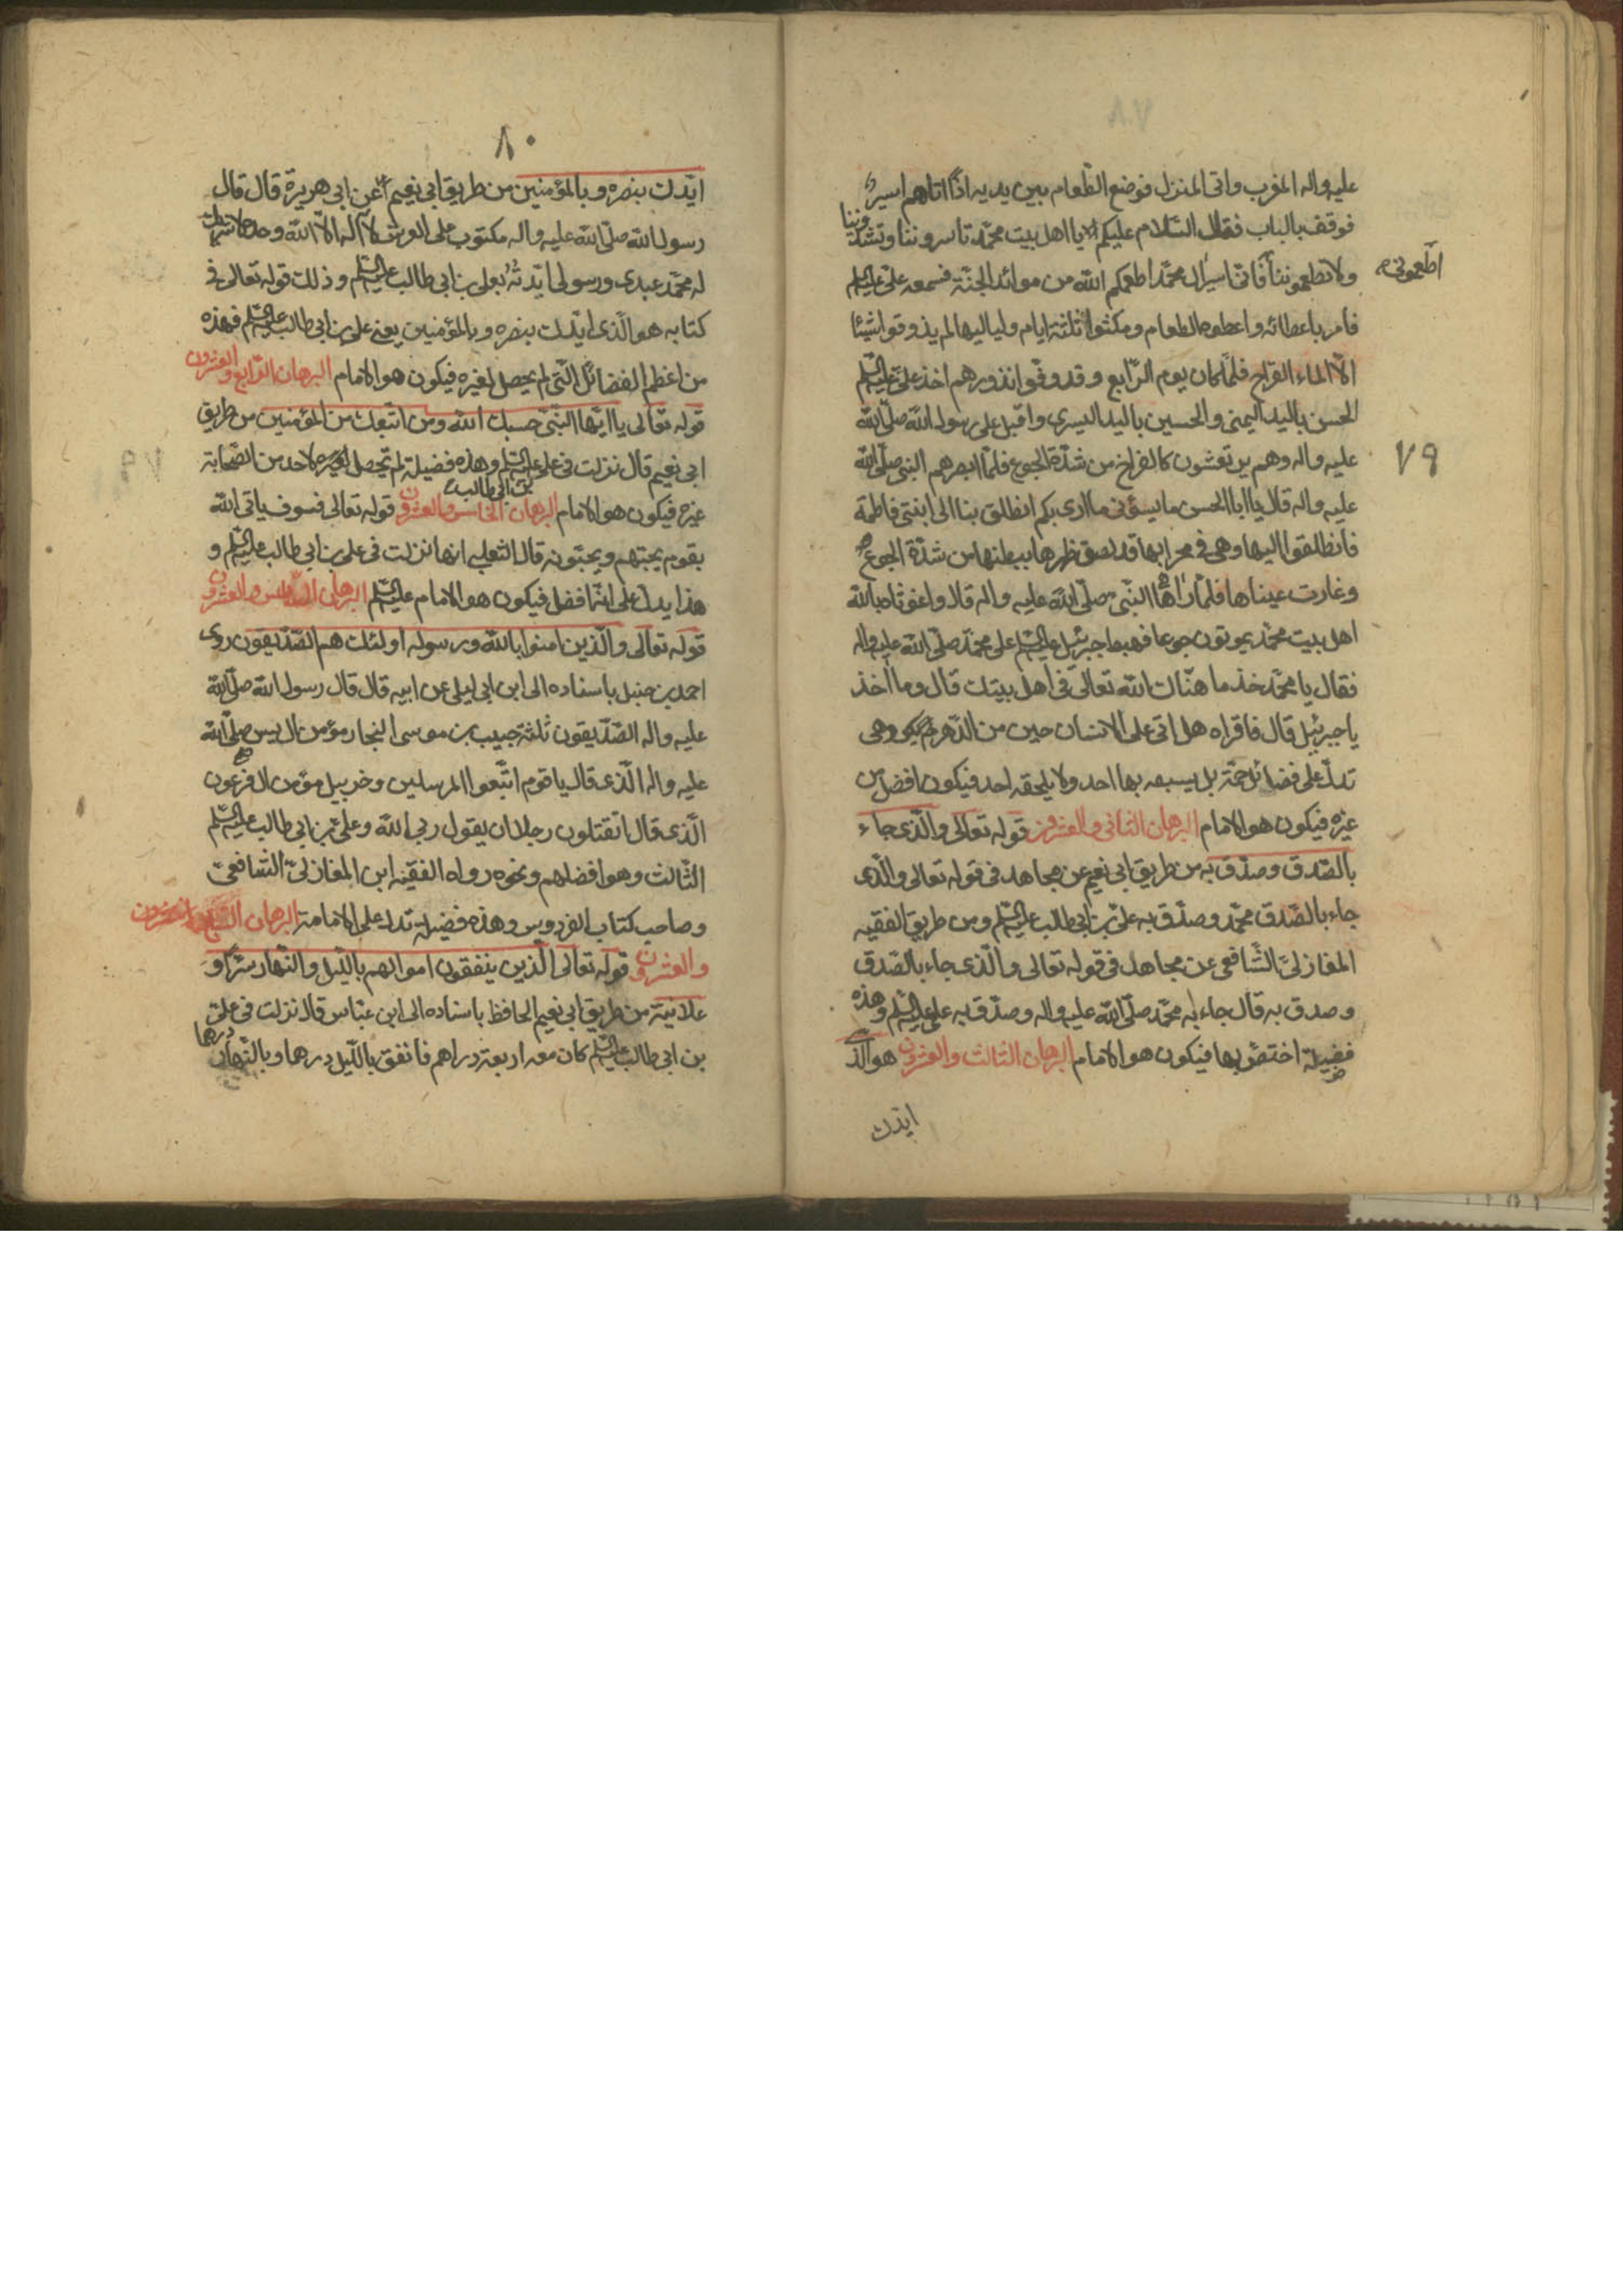 عليه واله المغرب واتى المنزل فوضع الطعام بين يديه اذا اتاهم اسير
فوقف بالباب فقال السّلام عليكم يا اهل بيت محمّد تاسروننا وتشدّوننا
ولا تطعموننا فانّى اسير ال محمّد اطعمكم الله من موائد الجنّة فسمعه علىّ عليه السّلم
اطعمونى
فامر باعطائه واعطوه الطعام ومكثوا ثلثة ايام ولياليها لم يذوقوا شيئا
الّا الماء القراح فلمّا كان يوم الرّابع وقد وفوا نذورهم اخذ علىّ عليه السّلم
الحسن باليد اليمنى والحسين باليد اليسرى واقبل على رسول الله صلّى الله
٧٩
عليه واله وهم يرتعشون كالفراخ من شدّة الجوع فلمّا ابصرهم النبى صلّى الله
عليه واله قال يا ابا الحسن ما يسؤنى ما ارى بكم انطلق بنا الى ابنتى فاطمة
فانطلقوا اليها وهى فى محرابها قد لصق ظهرها ببطنها من شدّة الجوع
وغارت عيناها فلمّا راها النّبى صلّى الله عليه واله قال واغوثاه بالله
اهل بيت محمّد يموتون جوعا فهبط جبرئيل عليه السّلم على محمّد صلّى الله عليه واله
فقال يا محمّد خذ ما هنّاك الله تعالى فى اهل بيتك قال وما اخذ
يا جبرئيل قال فاقراه هل اتى على الانسان حين من الدّهر وهى
تدلّ على فضائل جمّة بل يسبقه بها احد ولا يلحقه احد فيكون افضل من
غيره فيكون هو الامام البرهان الثانى والعشرون قوله تعالى والّذى جاء
بالصّدق وصدّق به من طريق ابى نعيم عن مجاهد فى قوله تعالى والّذى
جاء بالصّدق محمّد وصدّق به علىّ بن ابى طالب عليه السّلم ومن طريق الفقيه
المغازلىّ الشّافعى عن مجاهد فى قوله تعالى والّذى جاء بالصّدق
وصدق به قال جاء به محمّد صلّى الله عليه واله وصدّق به علىّ عليه السّلم وهذه
فضيلة اختصّ بها فيكون هو الامام البرهان الثالث والعشرون هو الّذى
ايّدك
٨٠
ايّدك بنصره وبالمؤمنين من طريق ابى نعيم عن ابى هريرة قال قال
رسول الله صلّى الله عليه واله مكتوب على العرش لا اله الّا الله وحده لا شريك
له محمّد عبدى ورسولى ايّدته بعلى بن ابى طالب عليه السّلم وذلك قوله تعالى فى
كتابه هو الّذى ايّدك بنصره وبالمؤمنين يعنى على بن ابى طالب عليه السّلم فهذه
من اعظم الفضائل الّتى لم يحصل لغيره فيكون هو الامام البرهان الرّابع والعشرون
قوله تعالى يا ايّها النّبىّ حسبك الله ومن اتّبعك من المؤمنين من طريق
ابى نعيم قال نزلت فى على عليه السّلم وهذه فضيلة لم تحصل لاحد من الصّحابة
بن ابى طالب
غيره فيكون هو الامام البرهان الخامس والعشرون قوله تعالى فسوف ياتى الله
بقوم يحبّهم ويحبّونه قال الثعلبى انها نزلت فى على بن ابى طالب عليه السّلم و
هذا يدلّ على انّه افضل فيكون هو الامام عليه السّلم البرهان السّادس والعشرون
قوله تعالى والّذين امنوا بالله ورسوله اولئك هم الصّدّيقون روى
احمد بن حنبل باسناده الى ابن ابى ليلى عن ابيه قال قال رسول الله صلّى الله
عليه واله الصّدّيقون ثلثة حبيب بن موسى النجار مؤمن ال يس صلّى الله
عليه واله الّذى قال يا قوم اتّبعوا المرسلين وخربيل مؤمن ال فرعون
الّذى قال اتقتلون رجلا ان يقول ربى الله وعلىّ بن ابى طالب عليه السّلم
الثّالث وهو افضلهم ونحوه رواه الفقيه ابن المغازلىّ الشّافعىّ
وصاحب كتاب الفردوس وهذه فضيلة تدل على الامامة البرهان السّابع والعشرون
والعشرون قوله تعالى الّذين ينفقون اموالهم باللّيل والنّهار سرّا و
علانية من طريق ابى نعيم الحافظ باسناده الى ابن عبّاس قال نزلت فى علىّ
بن ابى طالب عليه السّلم كان معه اربعة دراهم فانفق باللّيل درهما وبالنّهار درهما